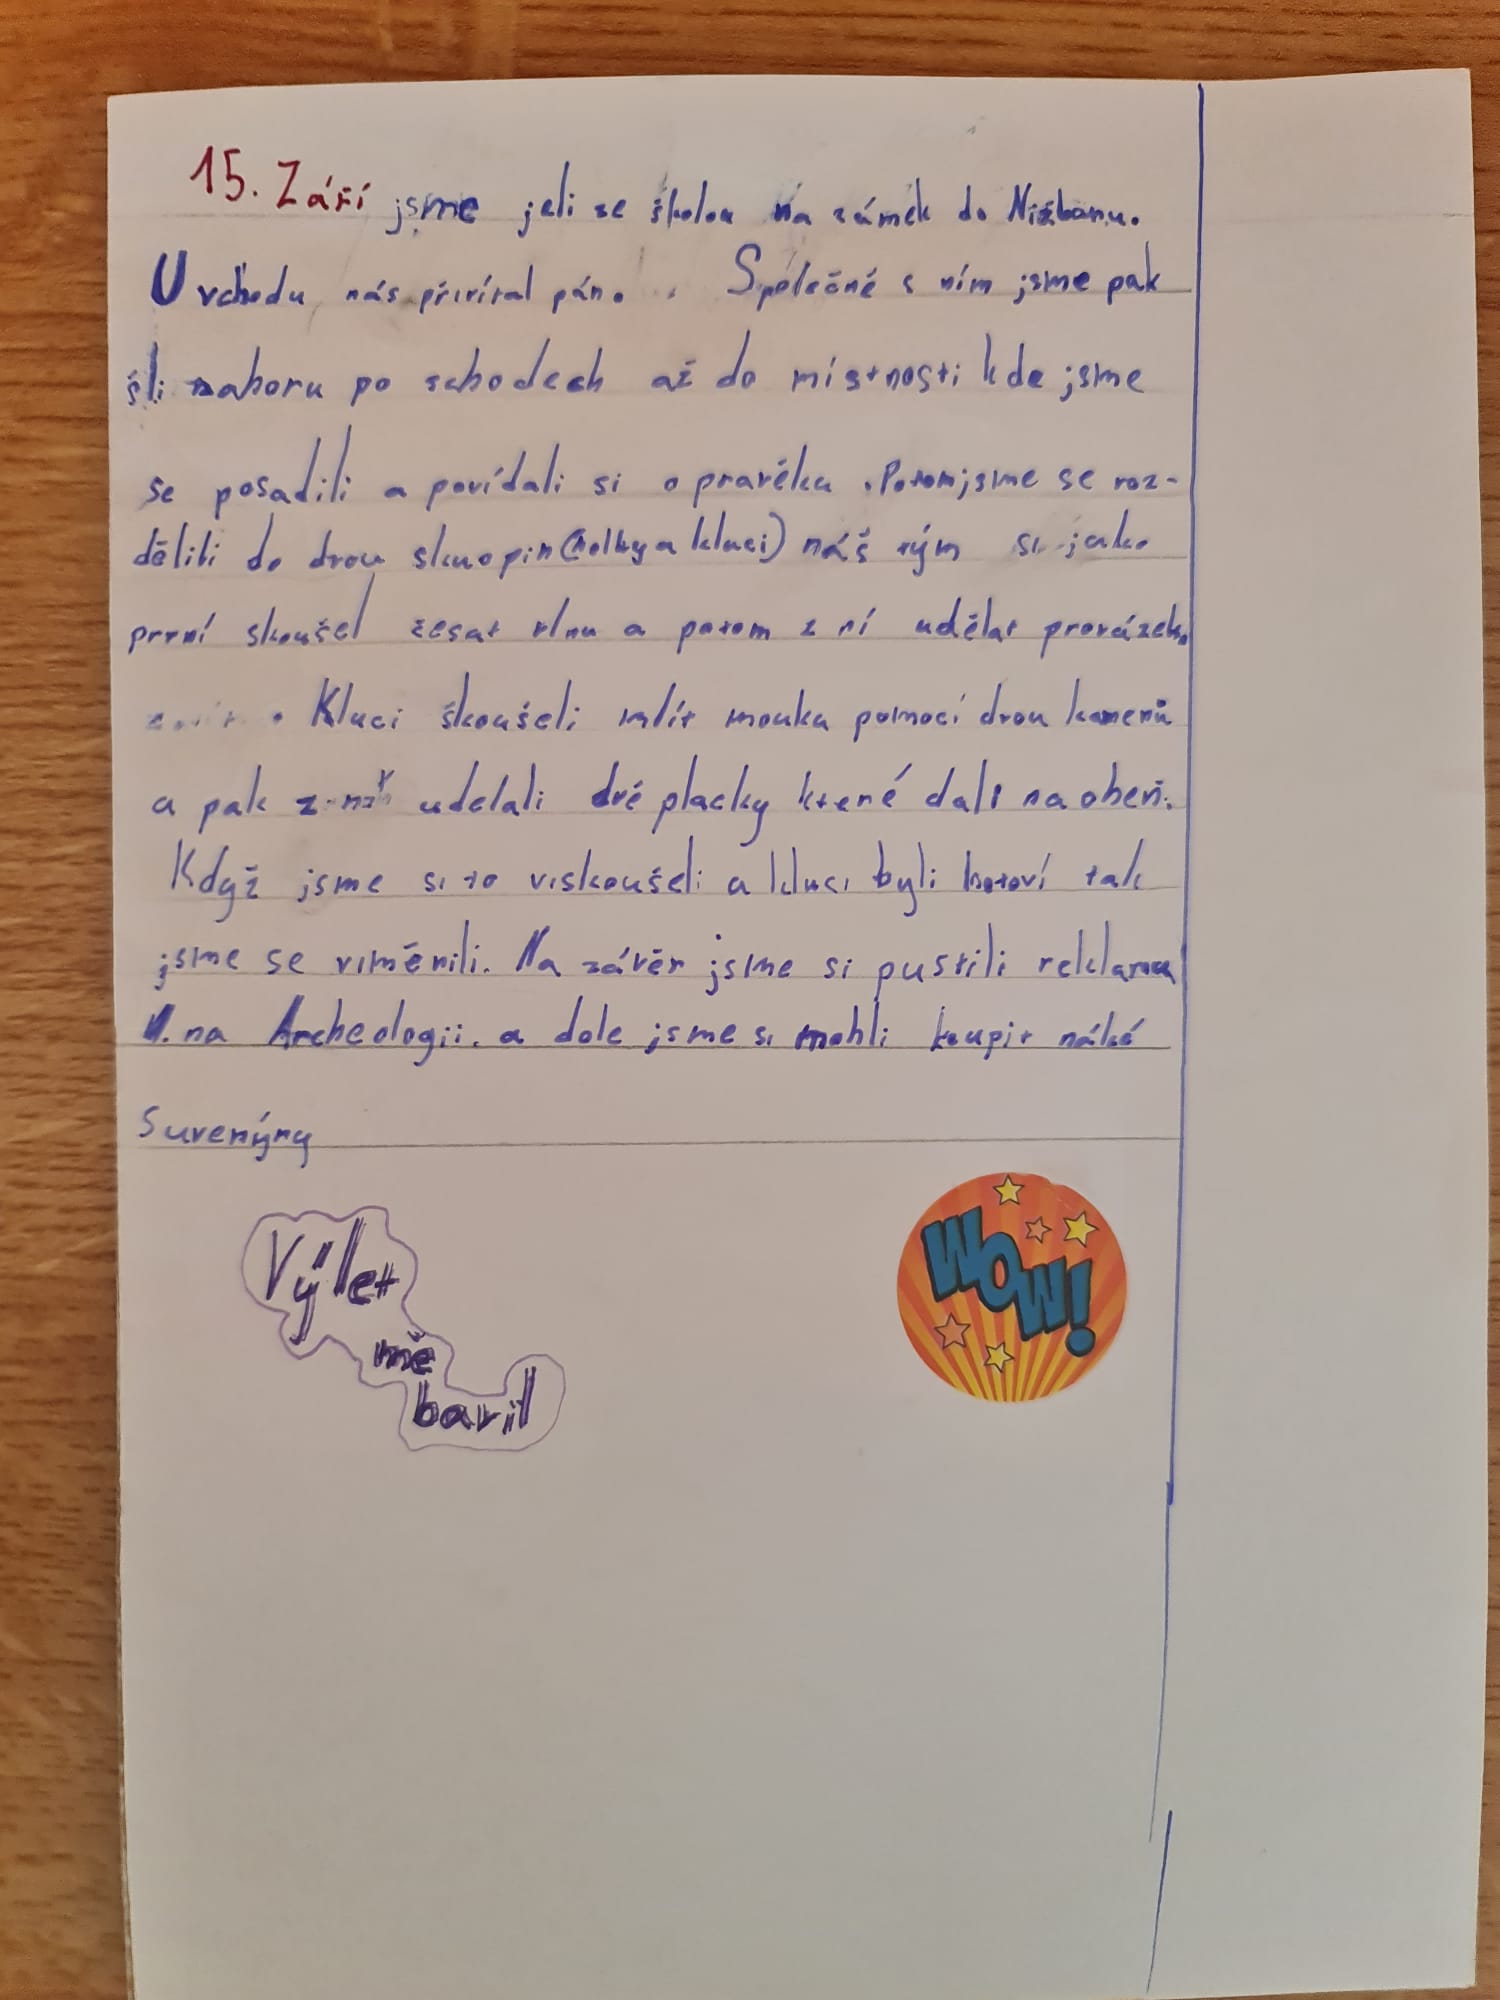 15. Září jsme jeli se školou na zámek do Nižbonu.
U vchodu nás přivítal pán. Společně s ním jsme pak
šli nahoru po schodech až do místnosti kde jsme
se posadili a povídali si o pravěku. Potom jsme se roz-
dělili do dvou skuopin (holky a kluci) náš tým si jako
první skoušel česat vlnu a potom z ní udělat provázek.
. Kluci škoušeli mlít mouku pomocí dvou kamenů
a pak z udelali dvě placky které dali na oheň.
Když jsme si to viskoušeli a kluci byli hotoví tak
jsme se viměnili. Na závěr jsme si pustili reklamu
na Archeologii. a dole jsme si mohli koupit náké
Suvenýny
Výlet
mě
bavil
WOW!